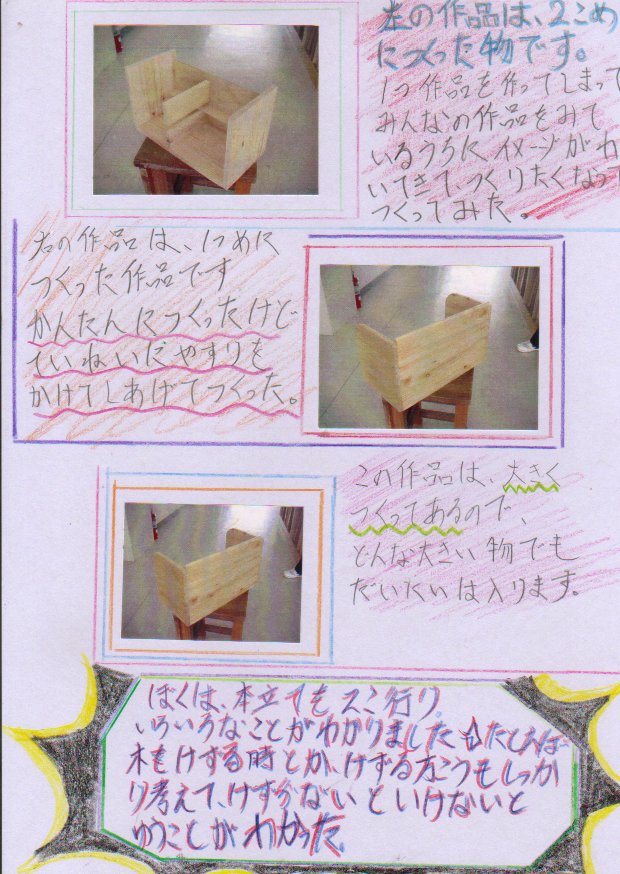 左の作品は、2こめ
につくった物です。
1つ作品を作ってしまって
みんなの作品をみて
いるうちにイメージがわ
いてきて、つくりたくなって
つくってみた。
右の作品は、1つめに
つくった作品です
かんたんにつくったけど
ていねいにやすりを
かけてしあげてつくった。
この作品は、大きく
つくってあるので、
どんな大きい物でも
だいたいは入ります。
ぼくは、本立てを2こ作り、
いろいろなことがわかりました たとえば
木をけずる時とか、けずる方こうもしっか
り考えて、けずらないといけないと
ゆうことがわかった。